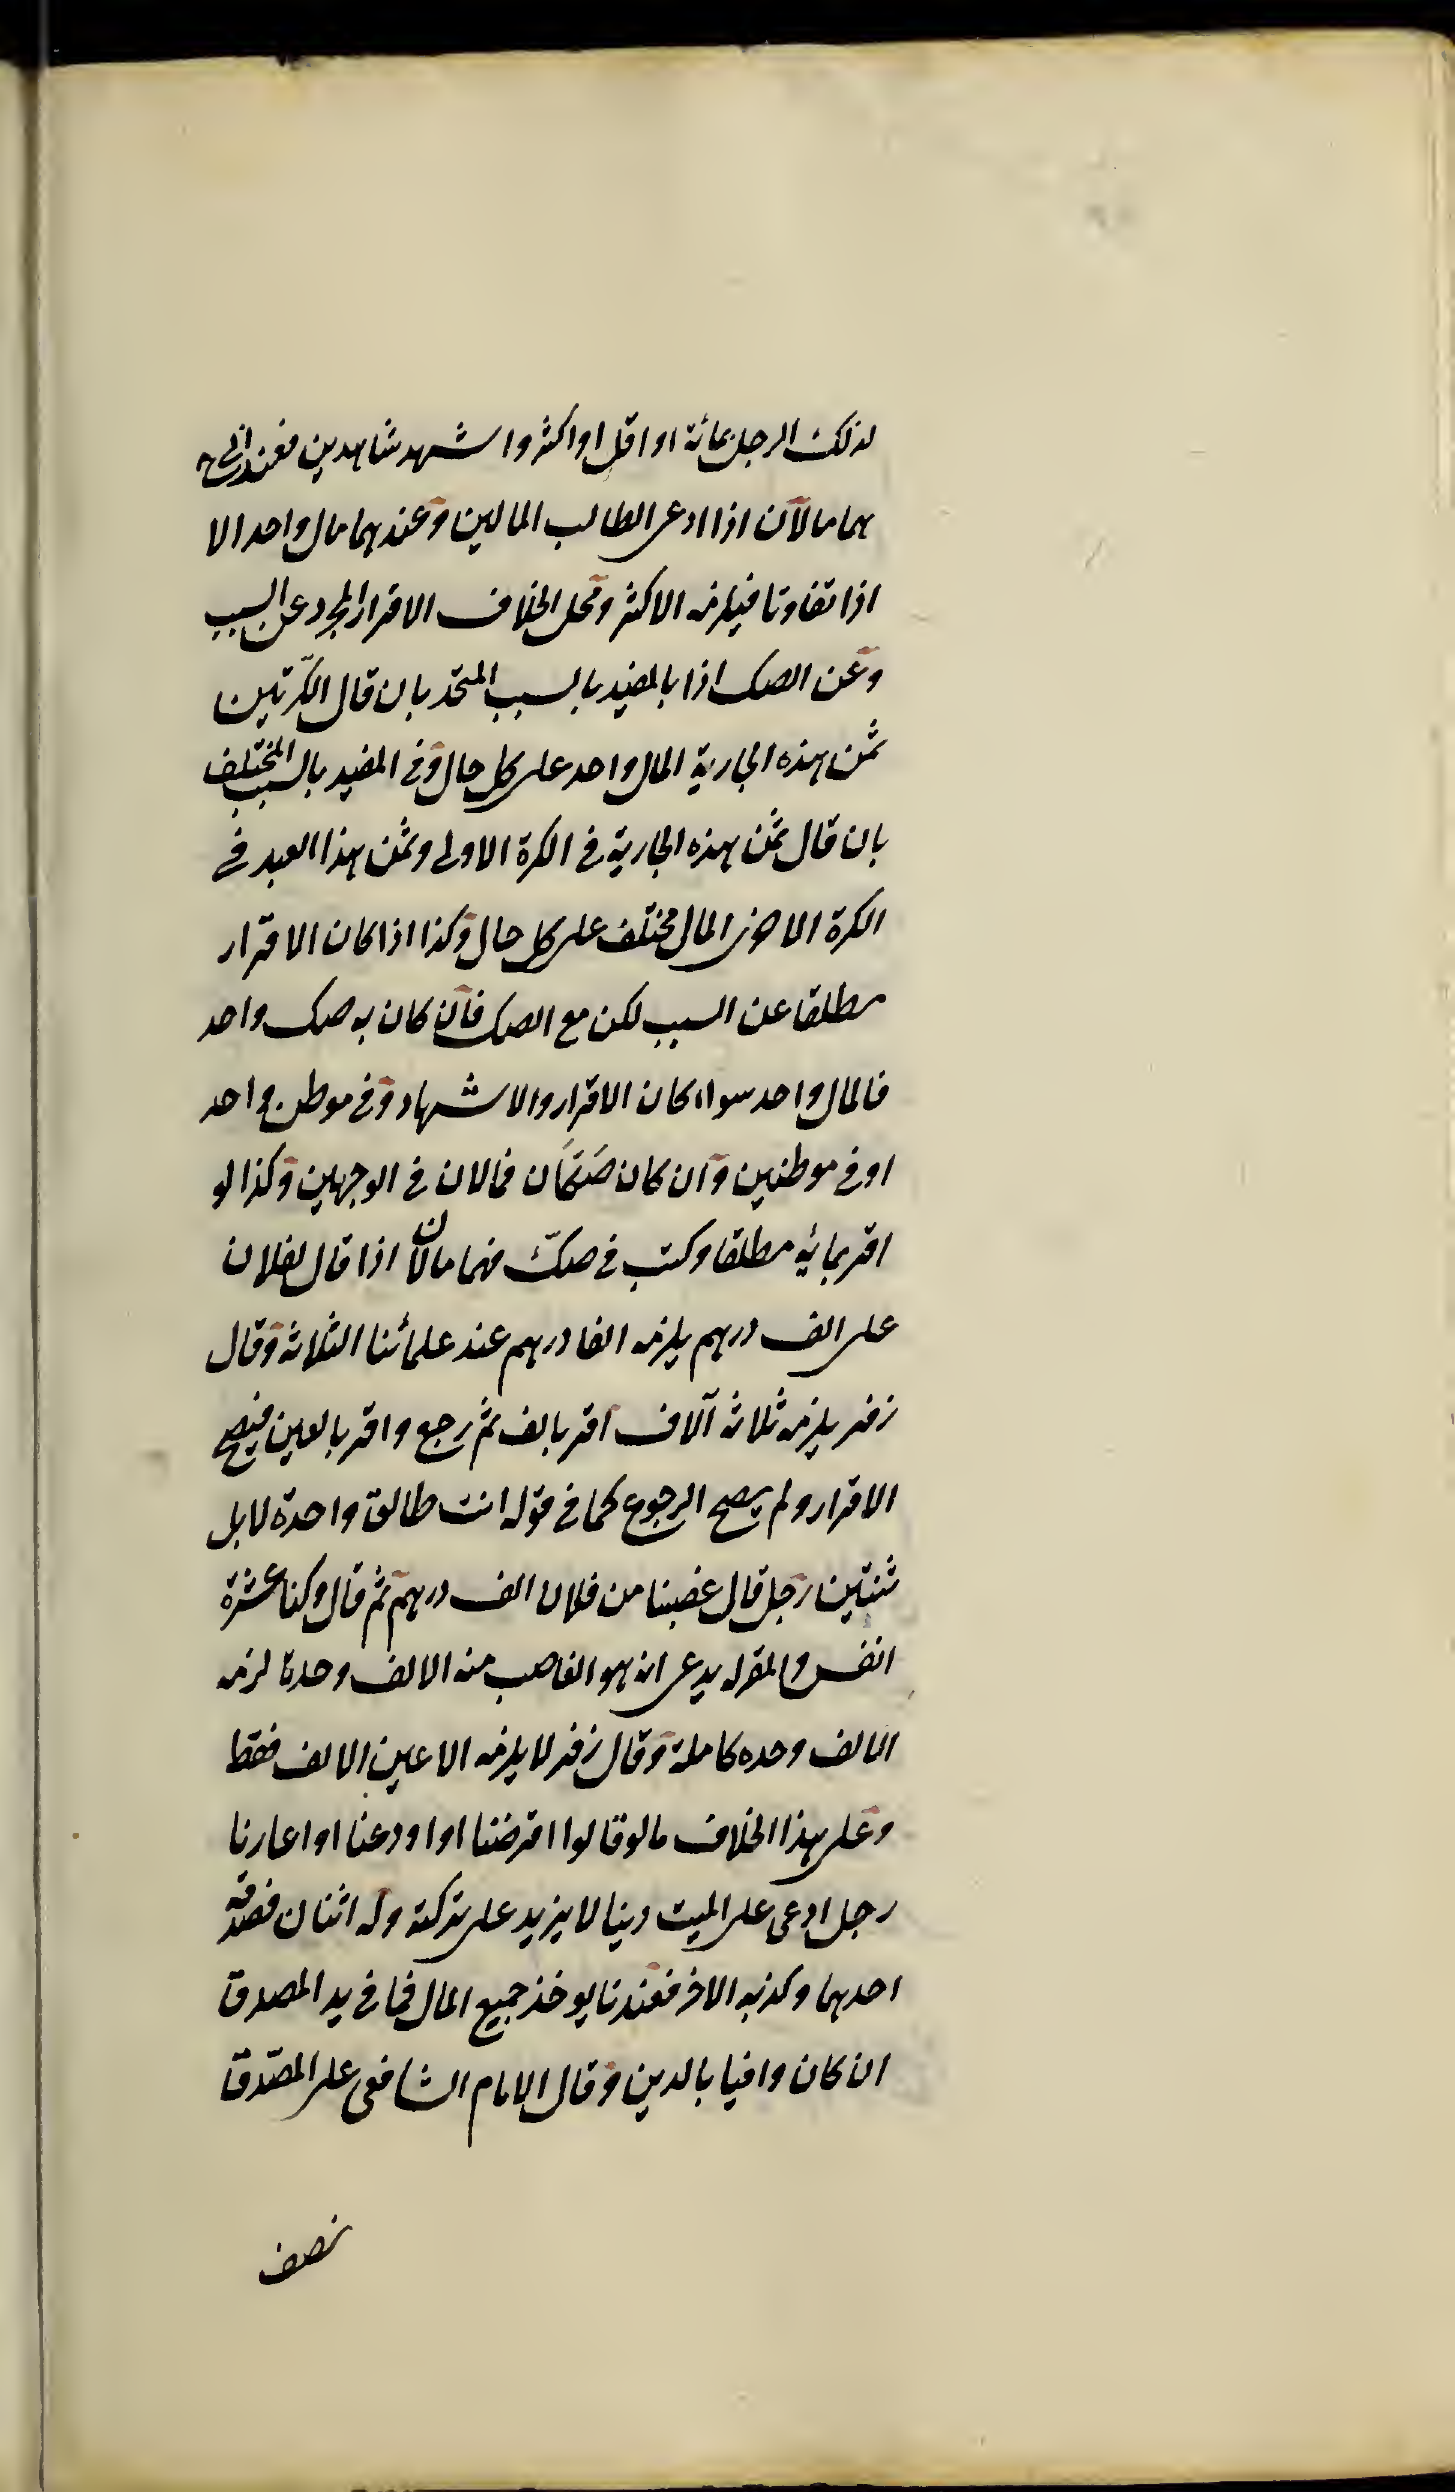 لذلك الرجل بمائة او اقل او اكثر واشهد شاهدين فعند ابى ح
هما مالان اذا ادعى الطالب المالين وعندهما مال واحد الا
اذا تفاوتا فيلزمه الاكثر ومحل الخلاف الاقرار المجرد عن السبب
وعن الصك اذا بالمقيد بالسبب المتحد بان قال الكرتين
ثمن هذه الجارية المال واحد على كل حال وفى المقيد بالسبب المختلف
بان قال ثمن هذه الجارية فى الكرة الاولى وثمن هذا العبد فى
الكرة الاخرى المال مختلف على كل حال وكذا اذا كان الاقرار
مطلقا عن السبب لكن مع الصك فان كان به صك واحد
فالمال واحد سواء كان الاقرار والاشهاد فى موطن واحد
او فى موطنين وان كان صكان فمالان فى الوجهين وكذا لو
اقر بمائة مطلقا وكتب فى صك فهما مالان اذا قال لفلان
على الف درهم يلزمه الفا درهم عند علمائنا الثلاثة وقال
زفر يلزمه ثلاثة آلاف اقر بالف ثم رجع واقر بالفين فيصح
الاقرار ولم يصح الرجوع كما فى قوله انت طالق واحدة لا بل
ثنتين رجل قال غصبنا من فلان الف درهم ثم قال وكنا عشرة
انفس والمقر له يدعى انه هو الغاصب منه الالف وحده لزمه
الالف وحده كاملة وقال زفر لا يلزمه الا عين الالف فقط
وعلى هذا الخلاف ما لو قالوا اقرضنا او اودعنا او اعارنا
رجل ادعى على الميت دينا لا يزيد على تركته وله اثنان فصدقه
احدهما وكذبه الاخر فعندنا يوخذ جميع المال فما فى يد المصدق
ان كان وافيا بالدين وقال الامام الشافعى على المصدق
نصف